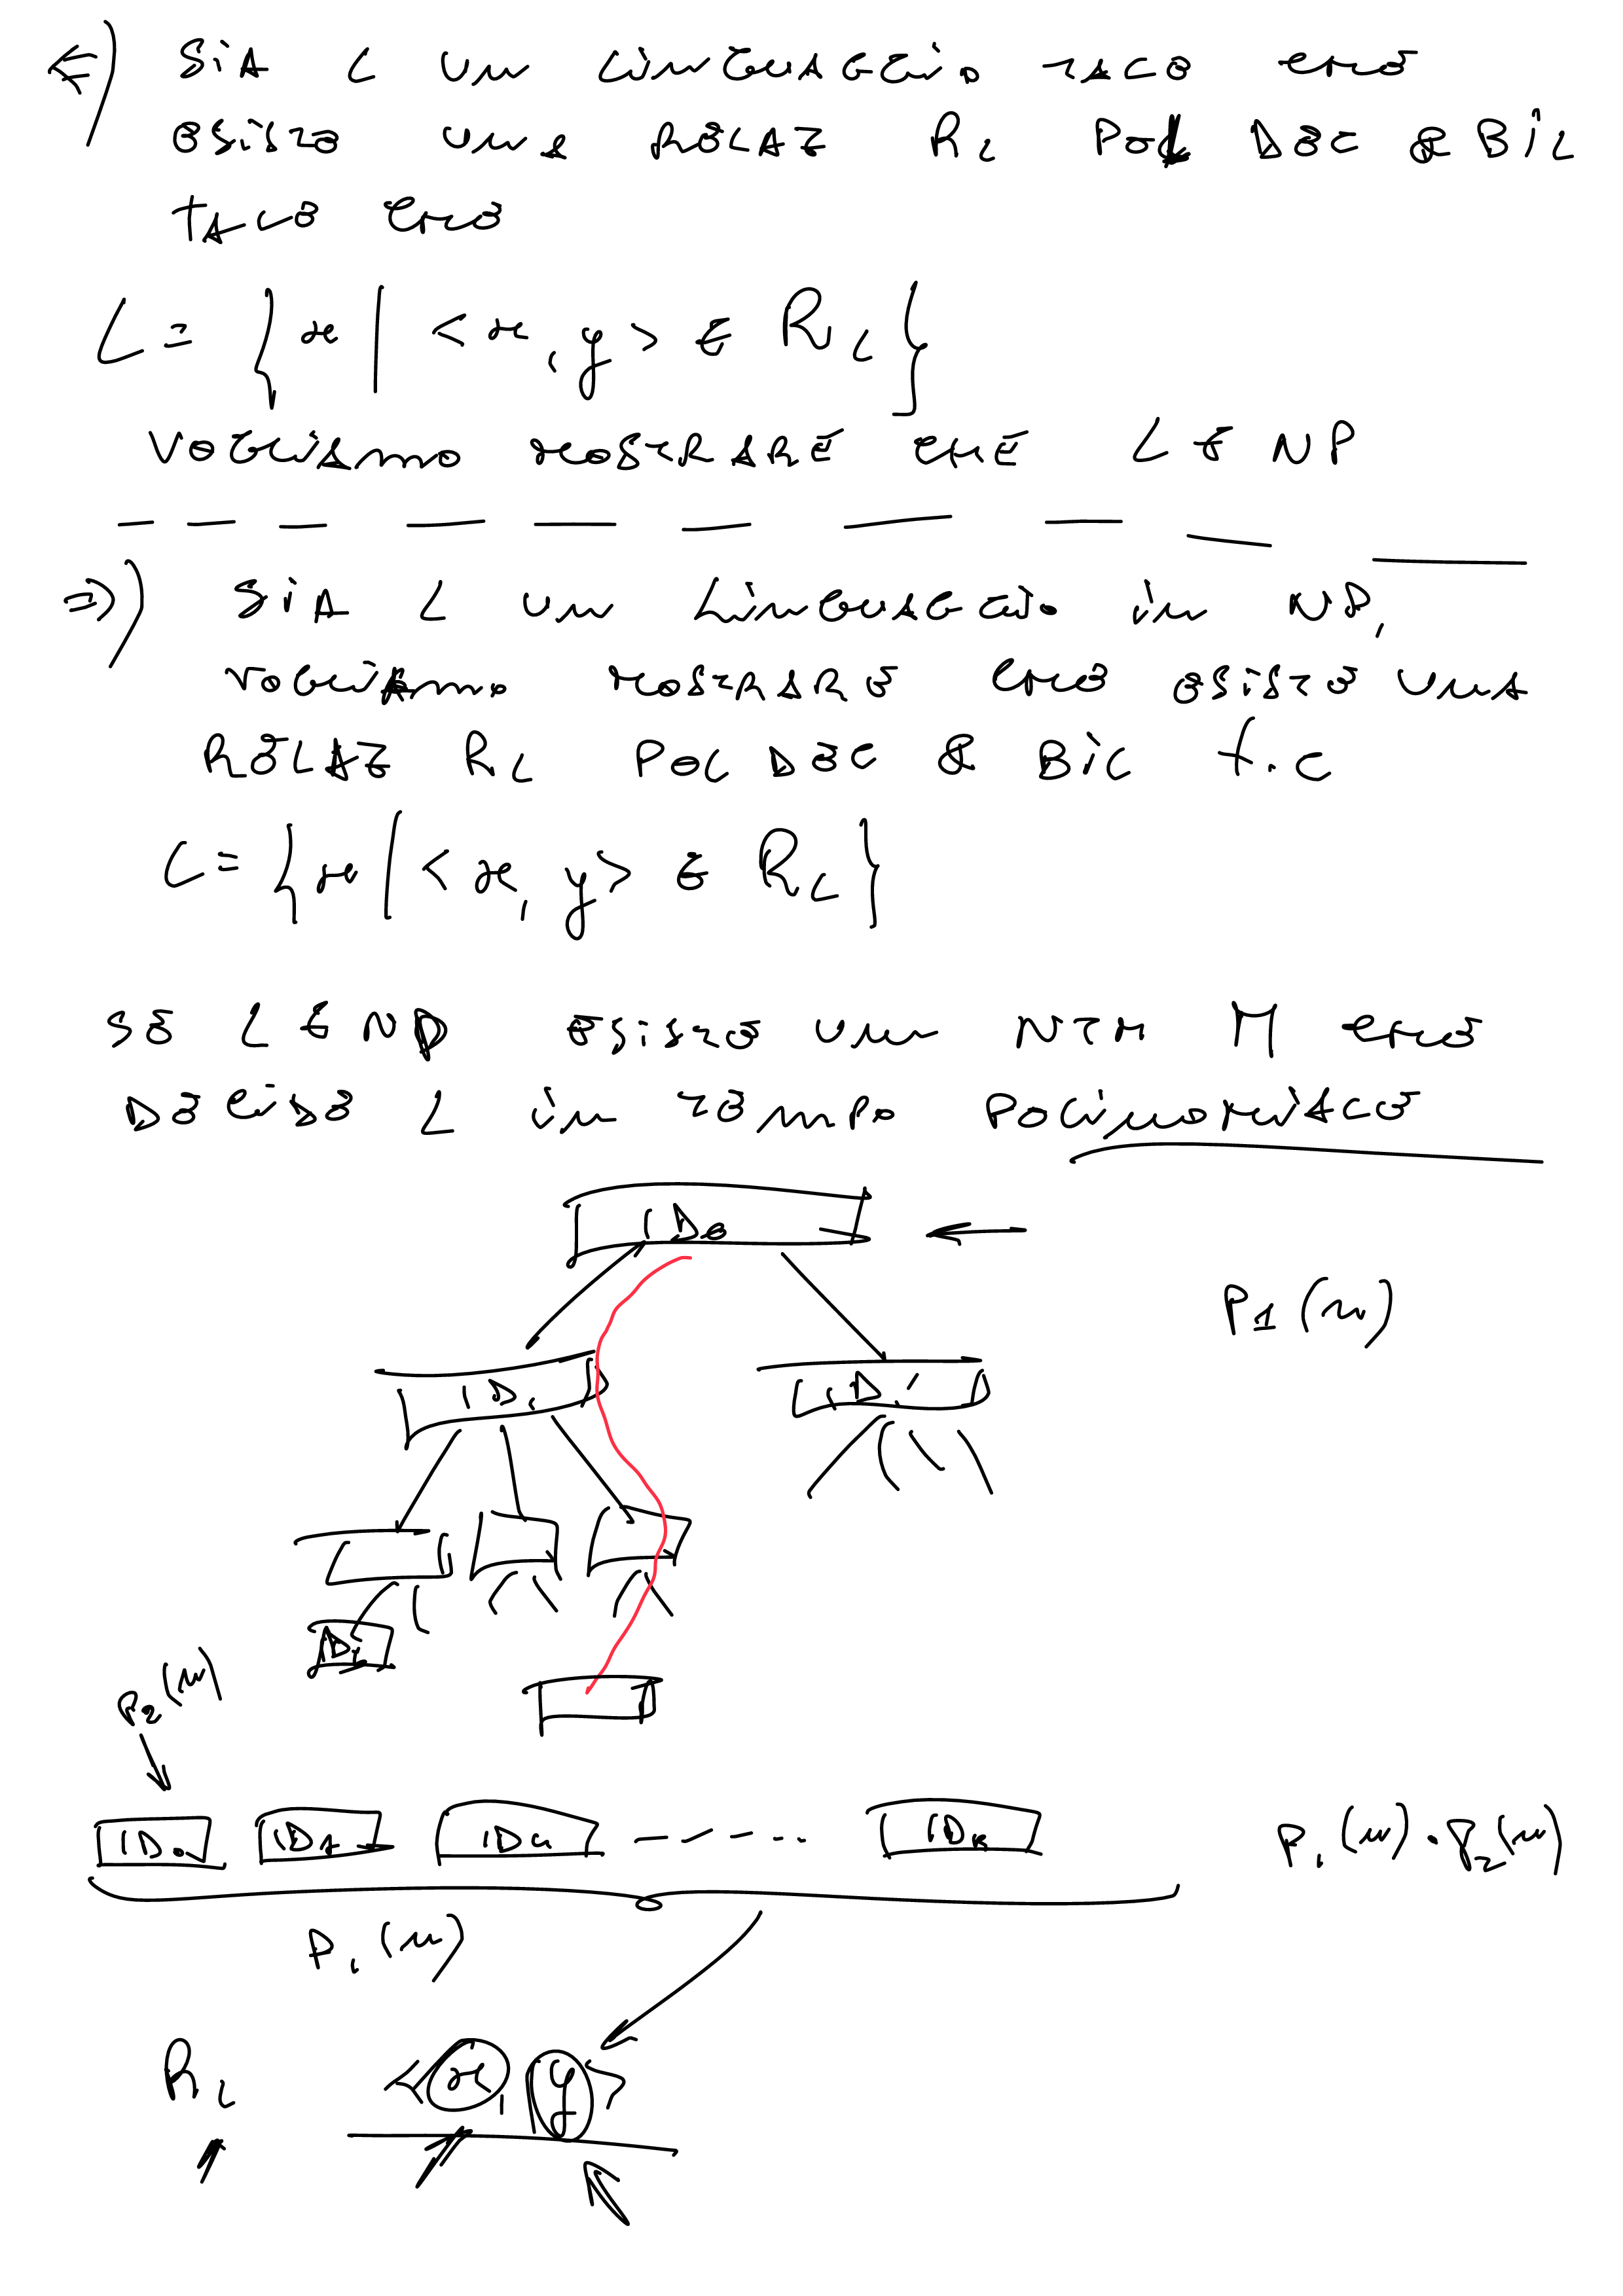 ⇐) SiA L un LinGuAGGio TALE CHE
ESiSTE UNA RELAZ R_L POL DEC & BiL
TALE CHE
L = { x | <x, y> ∈ R_L }
VOGLiAmo MOSTRARE CHE L ∈ NP
⇒) SiA L un LinGuAGGio in NP,
VOGLiAmo MOSTRARE CHE ESiSTE UNA
RELAZ R_L POL DEC & BiL t.c
L = { x | <x, y> ∈ R_L }
SE L ∈ NP ESiSTE un NTM M CHE
DECiDE L in TEmPo POLiNOMiALE
ID₀
P1(n)
ID₁ ID₁'
IDi
P₂(n)
ID₀ ID₁ ID₂ ---- IDk P₁(n)·P₂(n)
P₁(n)
R_L <x, y>